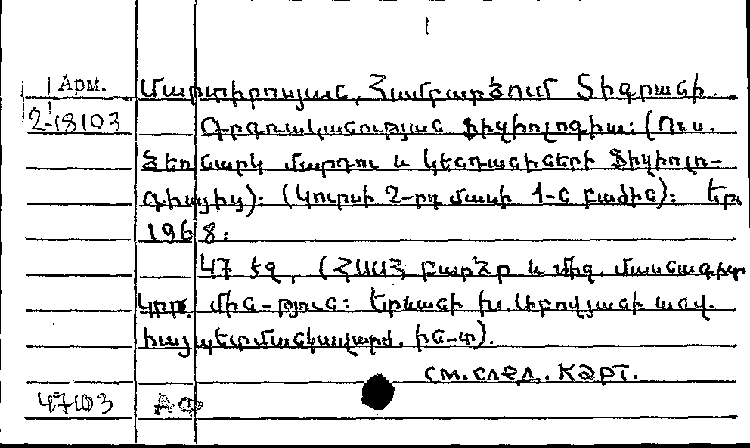 1
Арм. Մարտիրոսյան, Համբարձում Տիգրանի
2-18103 Գրգռականության ֆիզիոլոգիա: (Ուս.
ձեռնարկ մարդու և կենդանիների ֆիզիոլո-
գիայից): (Կուրսի 2-րդ մասի 1-ն բաժին): Եր.
1968:
47 էջ, (ՀՍՍՀ բարձր և միջ. մասնագիտ
կրթ. մին-թյուն: Երևանի Խ. Աբովյանի անվ.
հայ պետ. մանկավարժ. ին-տ).
см. след. карт.
47103 АФ